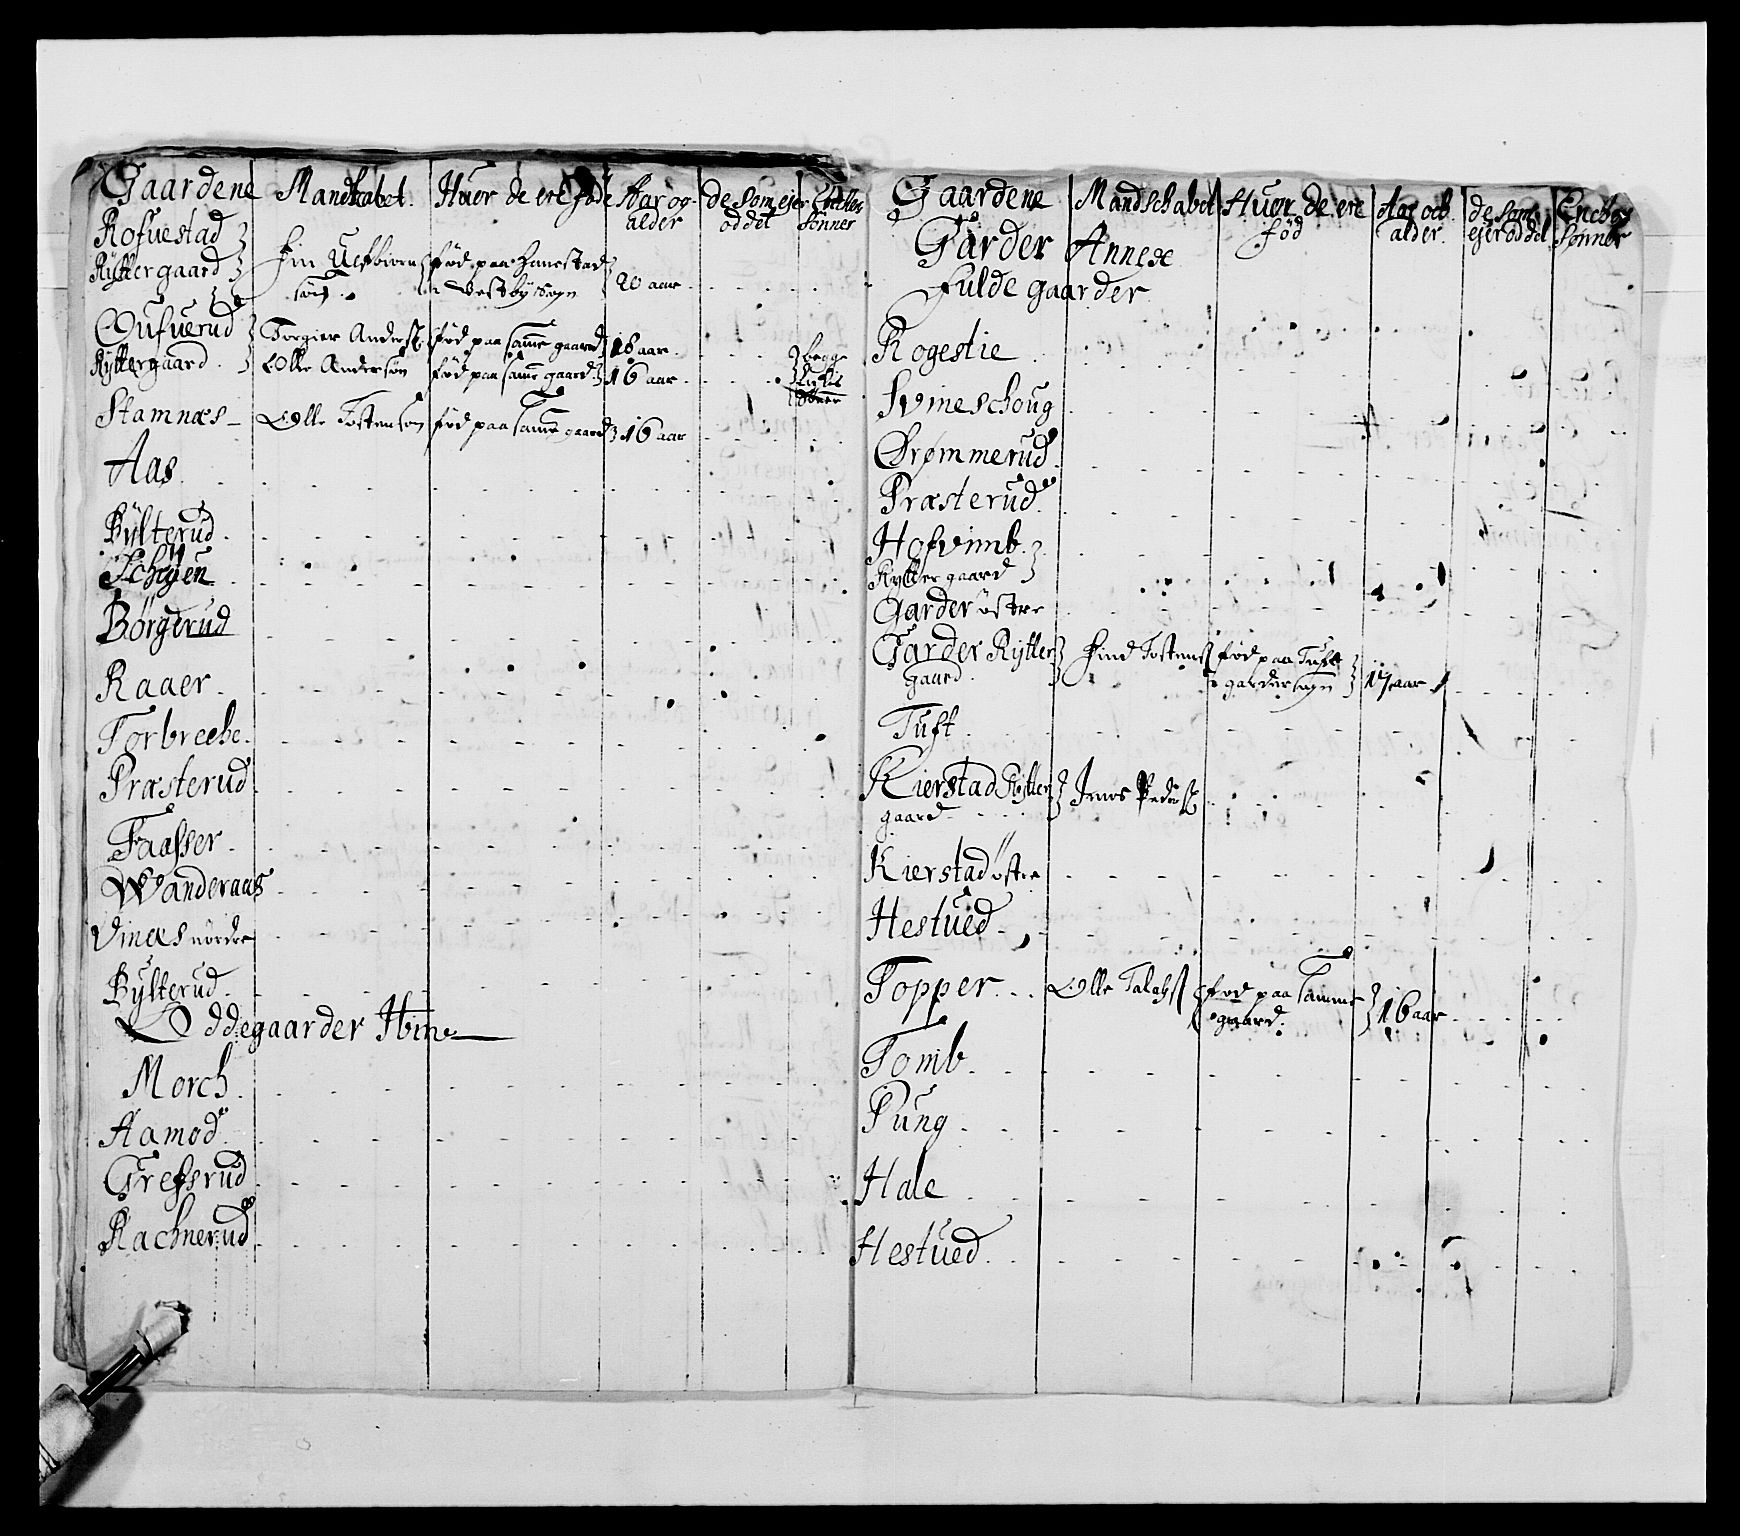 Gaardene Mandskabet. Huor de ere fød Aar og alder de som ejer oddet Encker Sønner
Rofuestad
Ryttergaard } Fin Uefbiørn søn. fød paa Hanestad i Vestby sogn } 20 aar
Oufuerud } Torgier Anders. fød paa samme gaard } 18 aar.
Ryttergaard. } Olle Andersøn fød paa samme gaard } 16 aar } begge
Stamnæs - Olle Tostensøn fød paa samme gaard } 16 aar
Aas.
Bÿlterud.
Schøyen
Börgerud
Raaer.
Torbreche.
Præsterud.
Faasser.
Wanderaas
Vinæs nordre
Bÿlterud.
Oddegaarder Ibm
Morch.
Aamod.
Grefsrud
Rachnerud
Gaardene Mandschabet Huor de ere fød Aar och alder. de som ejer oddel Encker Sønner
Garder Annex
Fulde gaarder
Rogestie
Svineschoug
Drømmerud.
Præsterud.
Hofvimb. }
Ryttergaard }
Garder östre
Garder Rytter gaard } Find Tostens. fød paa Tuft i garder sogn } 17 aar
Tuft.
Kierstad Rytter gaard } Jens Peders.
Kierstad östre
Hestued.
Topper. Olle Falahs. fød paa samme gaard. } 16 aar
Tomb
Pung
Hale
Hestued.